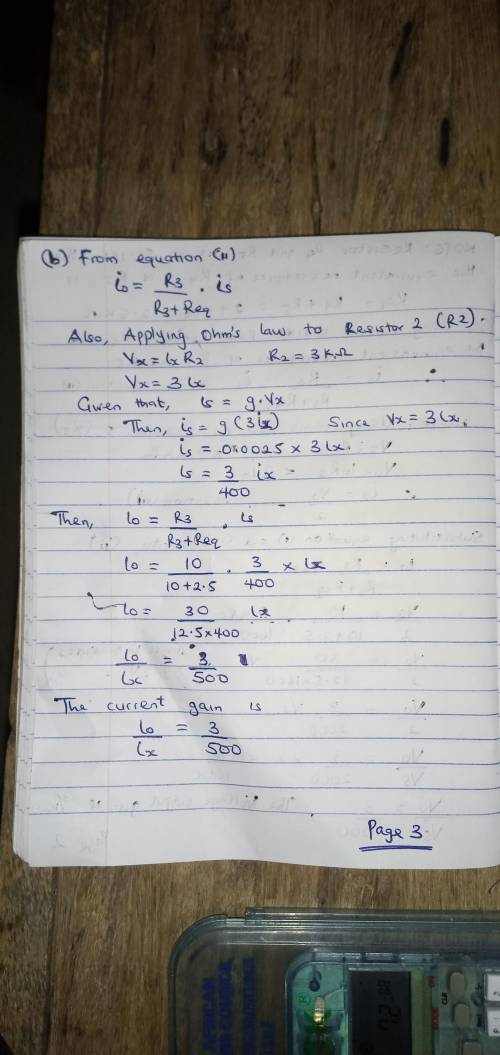 (b) From equation (11)
io = R3 / R3+Req . is
Also, Applying Ohm's law to Resistor 2 (R2).
Vx = ix R2 R2 = 3 KΩ
Vx = 3 ix
Given that, is = g.Vx
Then, is = g(3ix) Since Vx = 3ix.
is = 0.0025 x 3ix.
is = 3/400 ix
Then, io = R3 / R3+Req . is
io = 10 / 10+2.5 . 3/400 x ix
io = 30 / 12.5x400 ix
io/ix = 3/500
The current gain is
io/ix = 3/500
Page 3.